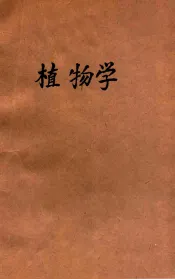 植物学